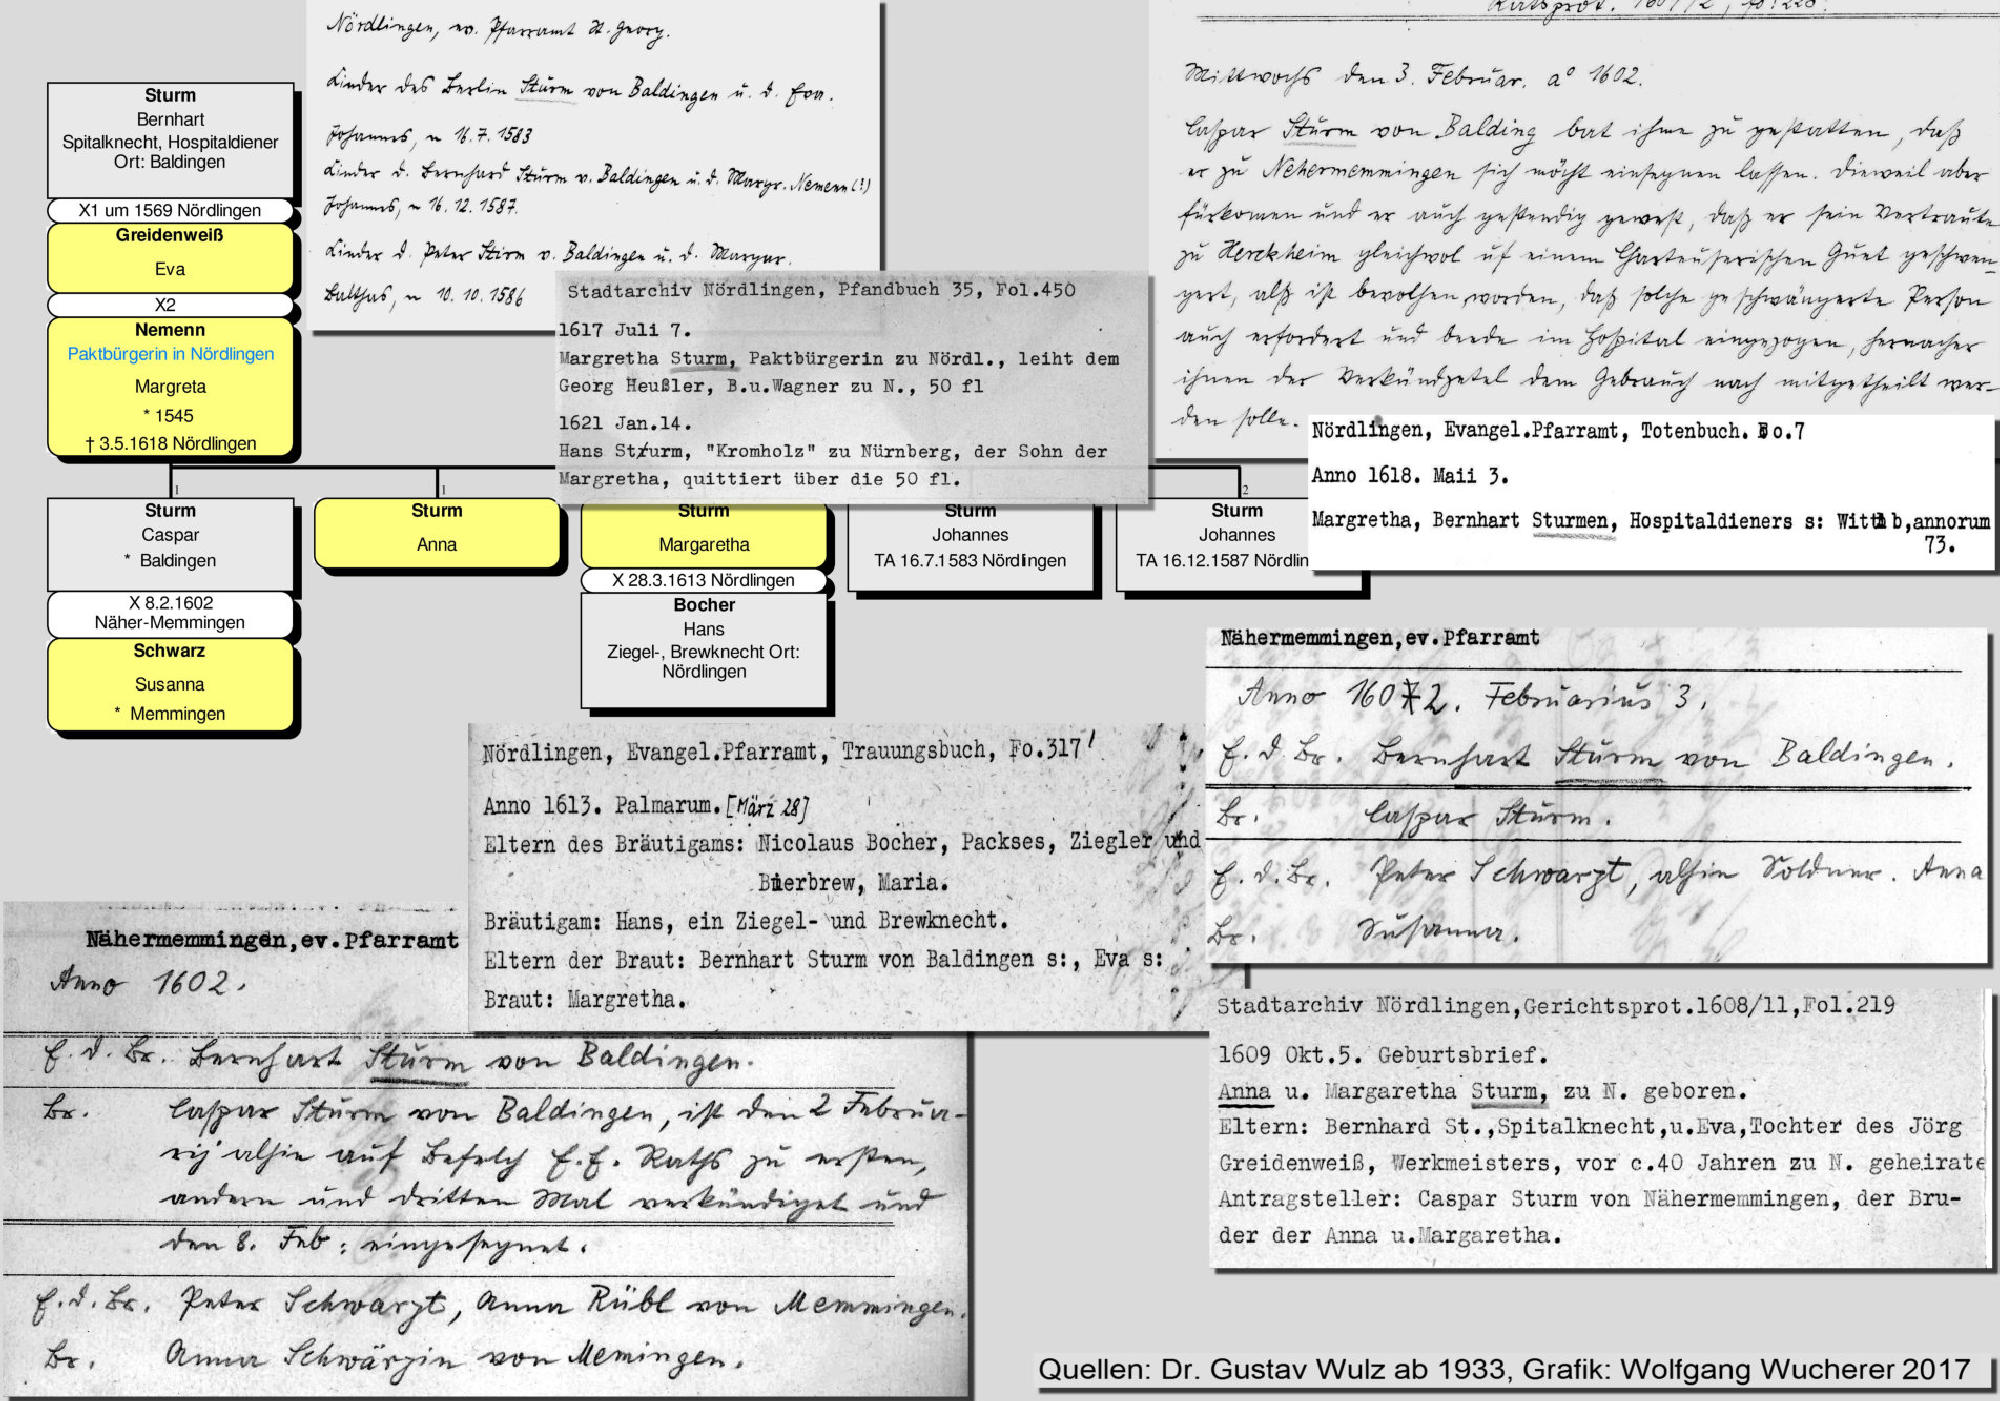 Sturm
Bernhart
Spitalknecht, Hospitaldiener
Ort: Baldingen
X1 um 1569 Nördlingen
Greidenweiß
Eva
X2
Nemenn
Paktbürgerin in Nördlingen
Margreta
* 1545
† 3.5.1618 Nördlingen
1
Sturm
Caspar
* Baldingen
X 8.2.1602
Näher-Memmingen
Schwarz
Susanna
* Memmingen
1
Sturm
Anna
Sturm
Margaretha
X 28.3.1613 Nördlingen
Bocher
Hans
Ziegel-, Brewknecht Ort:
Nördlingen
Sturm
Johannes
TA 16.7.1583 Nördlingen
2
Sturm
Johannes
TA 16.12.1587 Nördlin
Nördlingen, ev. Pfarramt St. Georg.
Kinder des Berlin Sturm von Baldingen u. d. Eva.
Johannes, 16.7.1583
Kinder d. Bernhard Sturm v. Baldingen u. d. Margr. Nemenn (!)
Johannes, 16.12.1587.
Kinder d. Peter Stirm v. Baldingen u. d. Margar.
Balthas, 10.10.1586
Stadtarchiv Nördlingen, Pfandbuch 35, Fol.450
1617 Juli 7.
Margretha Sturm, Paktbürgerin zu Nördl., leiht dem
Georg Heußler, B.u.Wagner zu N., 50 fl
1621 Jan.14.
Hans Sturm, "Kromholz" zu Nürnberg, der Sohn der
Margretha, quittiert über die 50 fl.
Ratsprot.
Mittwochs den 3. Februar. a° 1602.
Caspar Sturm von Balding bat ihme zu gestatten, daß
er zu Nehermemmingen sich möcht einsegnen lassen. Dieweil aber
fürkomen und er auch gestendig gewest, daß er sein Vertraute
zu Herckheim gleichwol uf einem Charteuserischen Guet geschwen-
gert, alß ist bevolhen worden, daß solche geschwängerte Person
auch erfordert und beede im Hospital eingezogen, hernacher
ihnen der Verkündzetel dem Gebrauch nach mitgetheilt wer-
den solle.
Nördlingen, Evangel.Pfarramt, Totenbuch. Fo.7
Anno 1618. Maii 3.
Margretha, Bernhart Sturmen, Hospitaldieners s: Wittib,annorum
73.
Nähermemmingen,ev.Pfarramt
Anno 1602. Februarius 3.
E. d. Br. Bernhart Sturm von Baldingen.
Br. Caspar Sturm.
E. d. Br. Peter Schwarzt, alhie Soldner. Anna
Br. Susanna.
Nördlingen, Evangel.Pfarramt, Trauungsbuch, Fo.317'
Anno 1613. Palmarum. [März 28]
Eltern des Bräutigams: Nicolaus Bocher, Packses, Ziegler und
Bierbrew, Maria.
Bräutigam: Hans, ein Ziegel- und Brewknecht.
Eltern der Braut: Bernhart Sturm von Baldingen s:, Eva s:
Braut: Margretha.
Nähermemmingen,ev.Pfarramt
Anno 1602.
E. d. Br. Bernhart Sturm von Baldingen.
Br. Caspar Sturm von Baldingen, ist den 2 Februa-
rij alhie auf Befelch E.E. Raths zu ersten,
andern und dritten Mal verkündiget und
den 8. Feb: eingesegnet.
E. d. Br. Peter Schwarzt, Anna Rübl von Memmingen.
Br. Anna Schwärzin von Memingen.
Stadtarchiv Nördlingen,Gerichtsprot.1608/11,Fol.219
1609 Okt.5. Geburtsbrief.
Anna u. Margaretha Sturm, zu N. geboren.
Eltern: Bernhard St.,Spitalknecht,u.Eva,Tochter des Jörg
Greidenweiß, Werkmeisters, vor c.40 Jahren zu N. geheirate
Antragsteller: Caspar Sturm von Nähermemmingen, der Bru-
der der Anna u.Margaretha.
Quellen: Dr. Gustav Wulz ab 1933, Grafik: Wolfgang Wucherer 2017